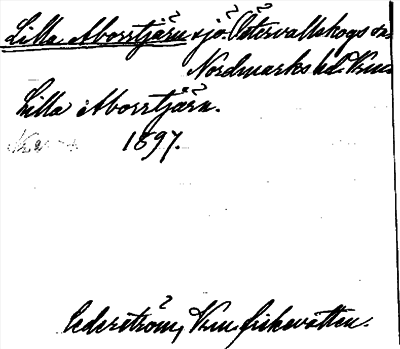 Lilla Aborrtjärn sjö. Östervallskogs sn
Nordmarks hd. Vrm.
Lilla Aborrtjärn.
1897.
Cederström, Vrm. fiskevatten.